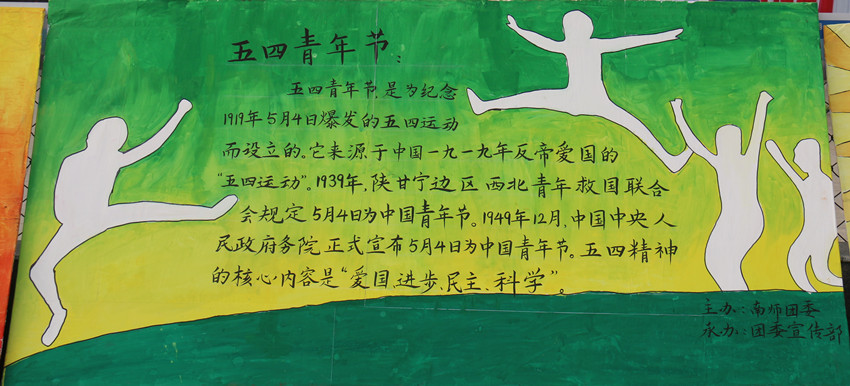 五四青年节：
五四青年节,是为纪念
1919年5月4日爆发的五四运动
而设立的。它来源于中国一九一九年反帝爱国的
“五四运动”。1939年,陕甘宁边区西北青年救国联合
会规定5月4日为中国青年节。1949年12月,中国中央人
民政府务院正式宣布5月4日为中国青年节。五四精神
的核心内容是“爱国、进步、民主、科学”。
主办：南师团委
承办：团委宣传部